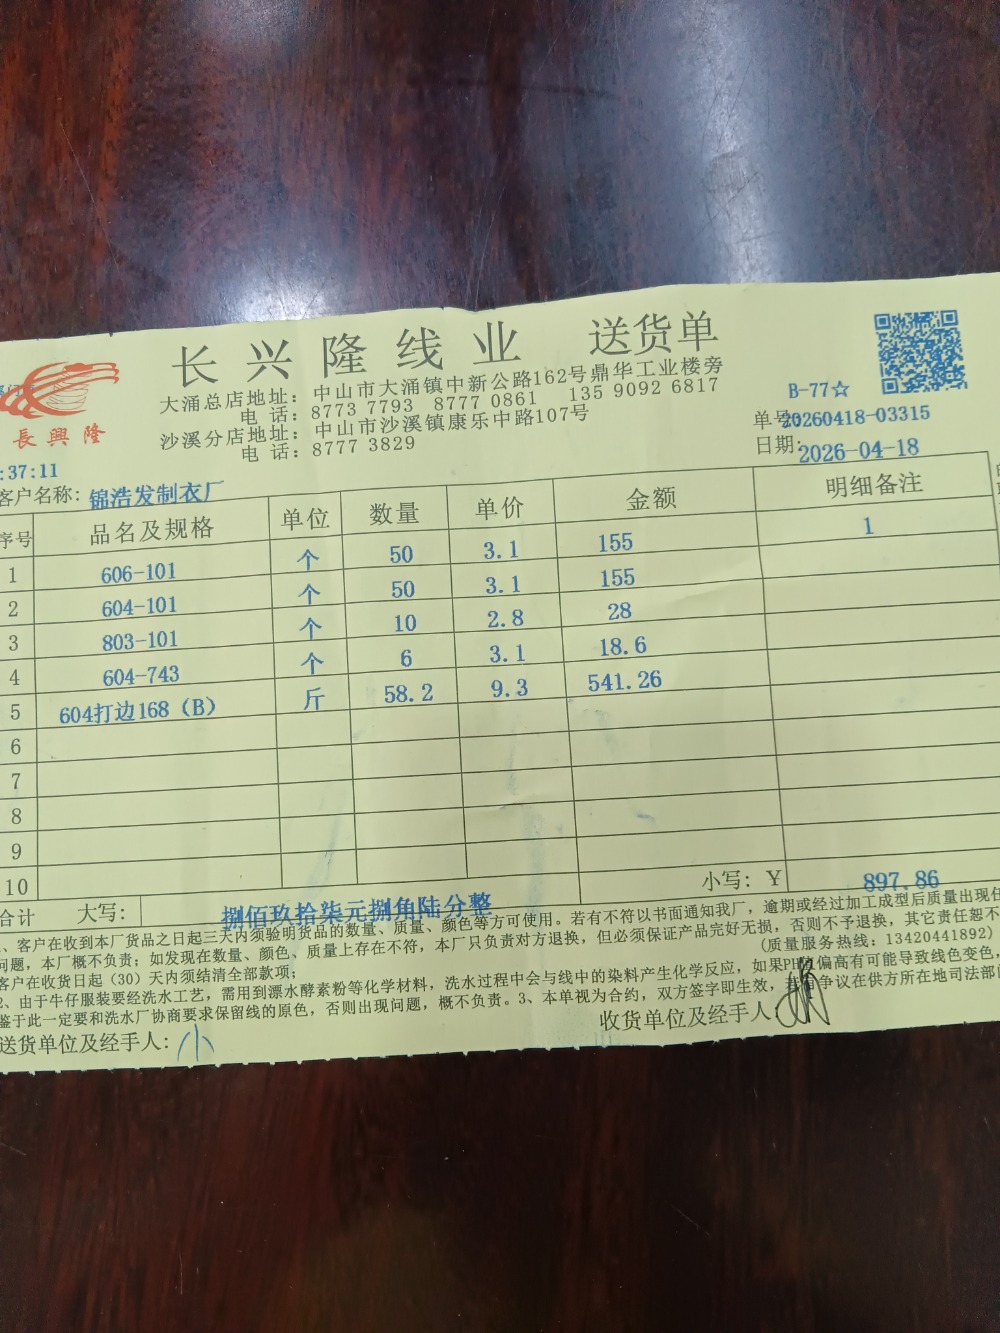 长兴隆线业 送货单
大涌总店地址：中山市大涌镇中新公路162号鼎华工业楼旁
电 话：8773 7793 8777 0861 135 9092 6817
沙溪分店地址：中山市沙溪镇康乐中路107号
电 话：8777 3829
長興隆
B-77☆
单号：20260418-03315
日期：2026-04-18
:37:11
客户名称：锦浩发制衣厂
序号 品名及规格 单位 数量 单价 金额 明细备注
1 606-101 个 50 3.1 155 1
2 604-101 个 50 3.1 155
3 803-101 个 10 2.8 28
4 604-743 个 6 3.1 18.6
5 604打边168（B） 斤 58.2 9.3 541.26
6
7
8
9
10
合计 大写：捌佰玖拾柒元捌角陆分整 小写：Y 897.86
、客户在收到本厂货品之日起三天内须验明货品的数量、质量、颜色等方可使用。若有不符以书面通知我厂，逾期或经过加工成型后质量出现任
问题，本厂概不负责；如发现在数量、颜色、质量上存在不符，本厂只负责对方退换，但必须保证产品完好无损，否则不予退换，其它责任恕不
客户在收货日起（30）天内须结清全部款项；
（质量服务热线：13420441892）
2、由于牛仔服装要经洗水工艺，需用到漂水酵素粉等化学材料，洗水过程中会与线中的染料产生化学反应，如果PH值偏高有可能导致线色变色，
鉴于此一定要和洗水厂协商要求保留线的原色，否则出现问题，概不负责。3、本单视为合约，双方签字即生效，若有争议在供方所在地司法部
送货单位及经手人：小
收货单位及经手人